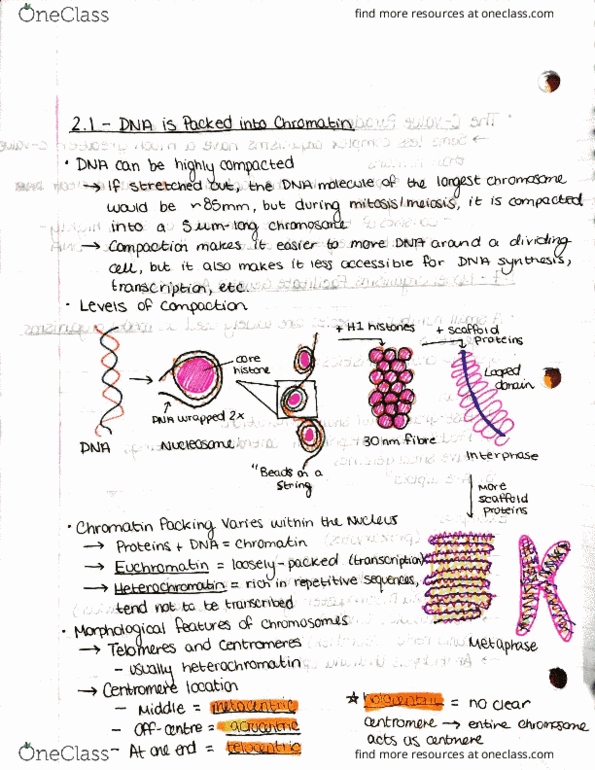 OneClass
find more resources at oneclass.com
2.1 - DNA is Packed into Chromatin
• DNA can be highly compacted
→ If stretched out, the DNA molecule of the largest chromosome
would be ~85mm, but during mitosis/meiosis, it is compacted
into a 5 µm-long chromosome
→ Compaction makes it easier to move DNA around a dividing
cell, but it also makes it less accessible for DNA synthesis,
transcription, etc.
• Levels of Compaction
+ H1 histones
+ scaffold
proteins
core
histone
Looped
domain
DNA wrapped 2x
DNA
Nucleosome
30nm fibre
Interphase
"Beads on a
String
More
scaffold
proteins
• Chromatin Packing Varies within the Nucleus
→ Proteins + DNA = chromatin
→ Euchromatin = loosely-packed (transcription)
→ Heterochromatin = rich in repetitive sequences,
tend not to be transcribed
Metaphase
• Morphological features of chromosomes
→ Telomeres and Centromeres
- usually heterochromatin
→ Centromere location
- Middle = metacentric
- Off-centre = acrocentric
- At one end = telocentric
☆ holocentric = no clear
centromere → entire chromosome
acts as centmere
OneClass
find more resources at oneclass.com